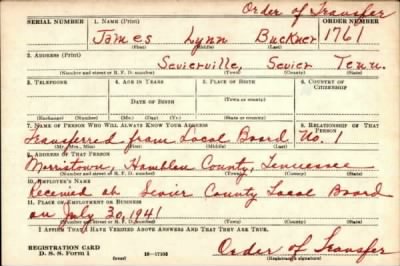 Order of Transfer
SERIAL NUMBER 1. NAME (Print) ORDER NUMBER
James Lynn Buckner 1761
(First) (Middle) (Last)
2. ADDRESS (Print)
Sevierville, Sevier Tenn.
(Number and street or R. F. D. number) (Town) (County) (State)
3. TELEPHONE 4. AGE IN YEARS 5. PLACE OF BIRTH 6. COUNTRY OF CITIZENSHIP
DATE OF BIRTH (Town or county)
(Exchange) (Number) (Mo.) (Day) (Yr.) (State or country)
7. NAME OF PERSON WHO WILL ALWAYS KNOW YOUR ADDRESS 8. RELATIONSHIP OF THAT PERSON
Transferred from Local Board No. 1
(Mr., Mrs., Miss) (First) (Middle) (Last)
9. ADDRESS OF THAT PERSON
Morristown, Hamblen County, Tennessee
(Number and street or R. F. D. number) (Town) (County) (State)
10. EMPLOYER'S NAME
Received at Sevier County Local Board
11. PLACE OF EMPLOYMENT OR BUSINESS
on July 30, 1941
(Number and street or R. F. D. number) (Town) (County) (State)
I AFFIRM THAT I HAVE VERIFIED ABOVE ANSWERS AND THAT THEY ARE TRUE.
REGISTRATION CARD
D. S. S. Form 1 (over) Order of Transfer
(Registrant's signature)